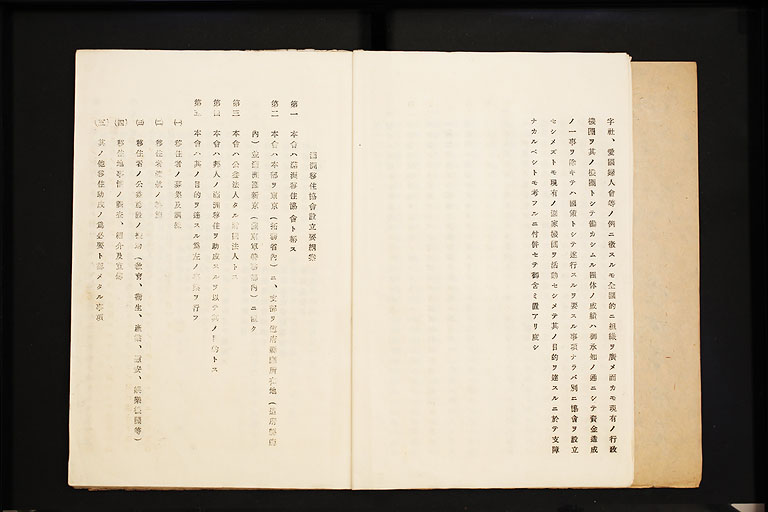 字社、愛國婦人會等ノ例ニ徵スルモ全國的ニ組織ヲ廣メ而カモ現有ノ行政
機關ヲ其ノ機關トシテ働カシムル團体ノ成績ハ御承知ノ通ニシテ資金造成
ノ一事ヲ除キテハ國策トシテ遂行スルヲ要スル事項ナラバ別ニ協會ヲ設立
セシメズトモ現有ノ國家機關ヲ活動セシメテ其ノ目的ヲ達スルニ於テ支障
ナカルベシトモ考フルニ付併セテ御含ミ置アリ度シ
滿洲移住協會設立要綱案
第一 本會ハ滿洲移住協會ト稱ス
第二 本會ハ本部ヲ東京(拓務省內)ニ、支部ヲ
內)並滿洲國新京( 內)ニ置ク
第三 本會ハ公益法人タル財團法人トス
第四 本會ハ邦人ノ滿洲移住ヲ助成スルヲ以テ其ノ目的トス
第五 本會ハ其ノ目的ヲ達スル爲左ノ事業ヲ行フ
(一) 移住者ノ募集及訓練
(二) 移住者
(三) 移住者ノ公益施設ノ (敎育、衞生、產業、 、娛樂機關等)
(四) 移住地事情ノ調査、紹介及宣傳
(五) 其ノ他移住助成ノ爲必要ト認メタル事項